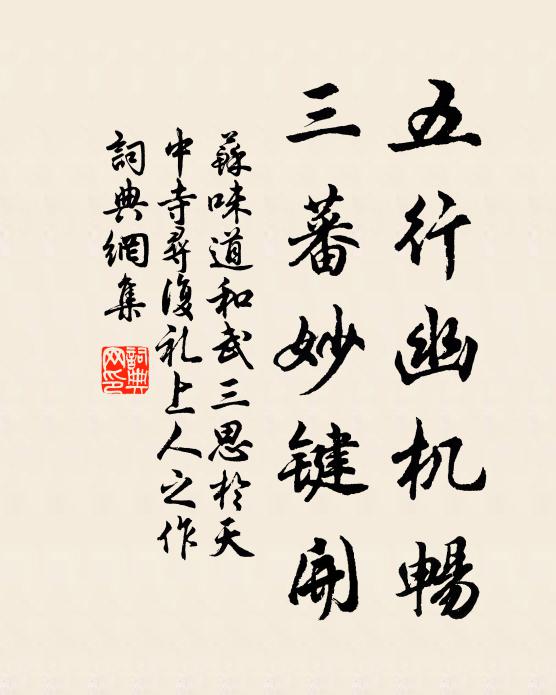 五行幽机暢
三蕃妙键開
蘇味道和武三思於天
中寺尋復礼上人之作
詞典網集
詞典網印